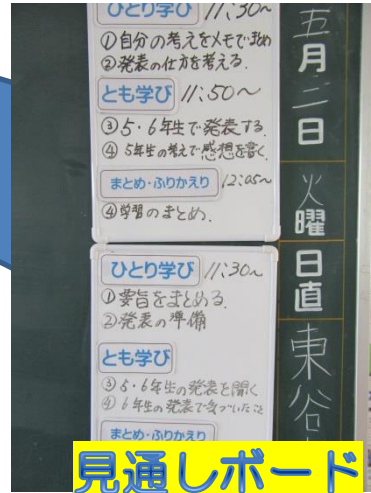 ひとり学び 11:30~
①自分の考えをメモでまとめ
②発表の仕方を考える.
とも学び 11:50~
③5・6年生で発表する
④ 5年生の考えで感想を書く.
まとめ・ふりかえり 12:05~
④学習のまとめ.
ひとり学び 11:30~
①要旨をまとめる.
②発表の準備
とも学び
③5・6年生の発表を聞く
④ 6年生の発表で気づいたこと
まとめ・ふりかえり
五月二日 火曜
日直 東谷
見通しボード